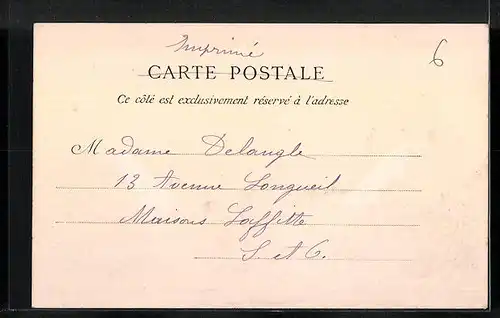 Imprimé
6
CARTE POSTALE
Ce côté est exclusivement réservé à l'adresse
Madame Delangle
13 Avenue Longueil
Maisons Laffitte
S. et O.